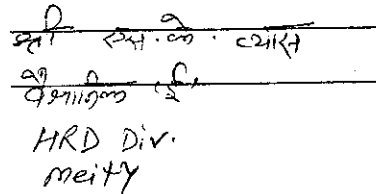 श्री एस. के. व्यास
वैज्ञानिक 'ई'
HRD Div.
Meity